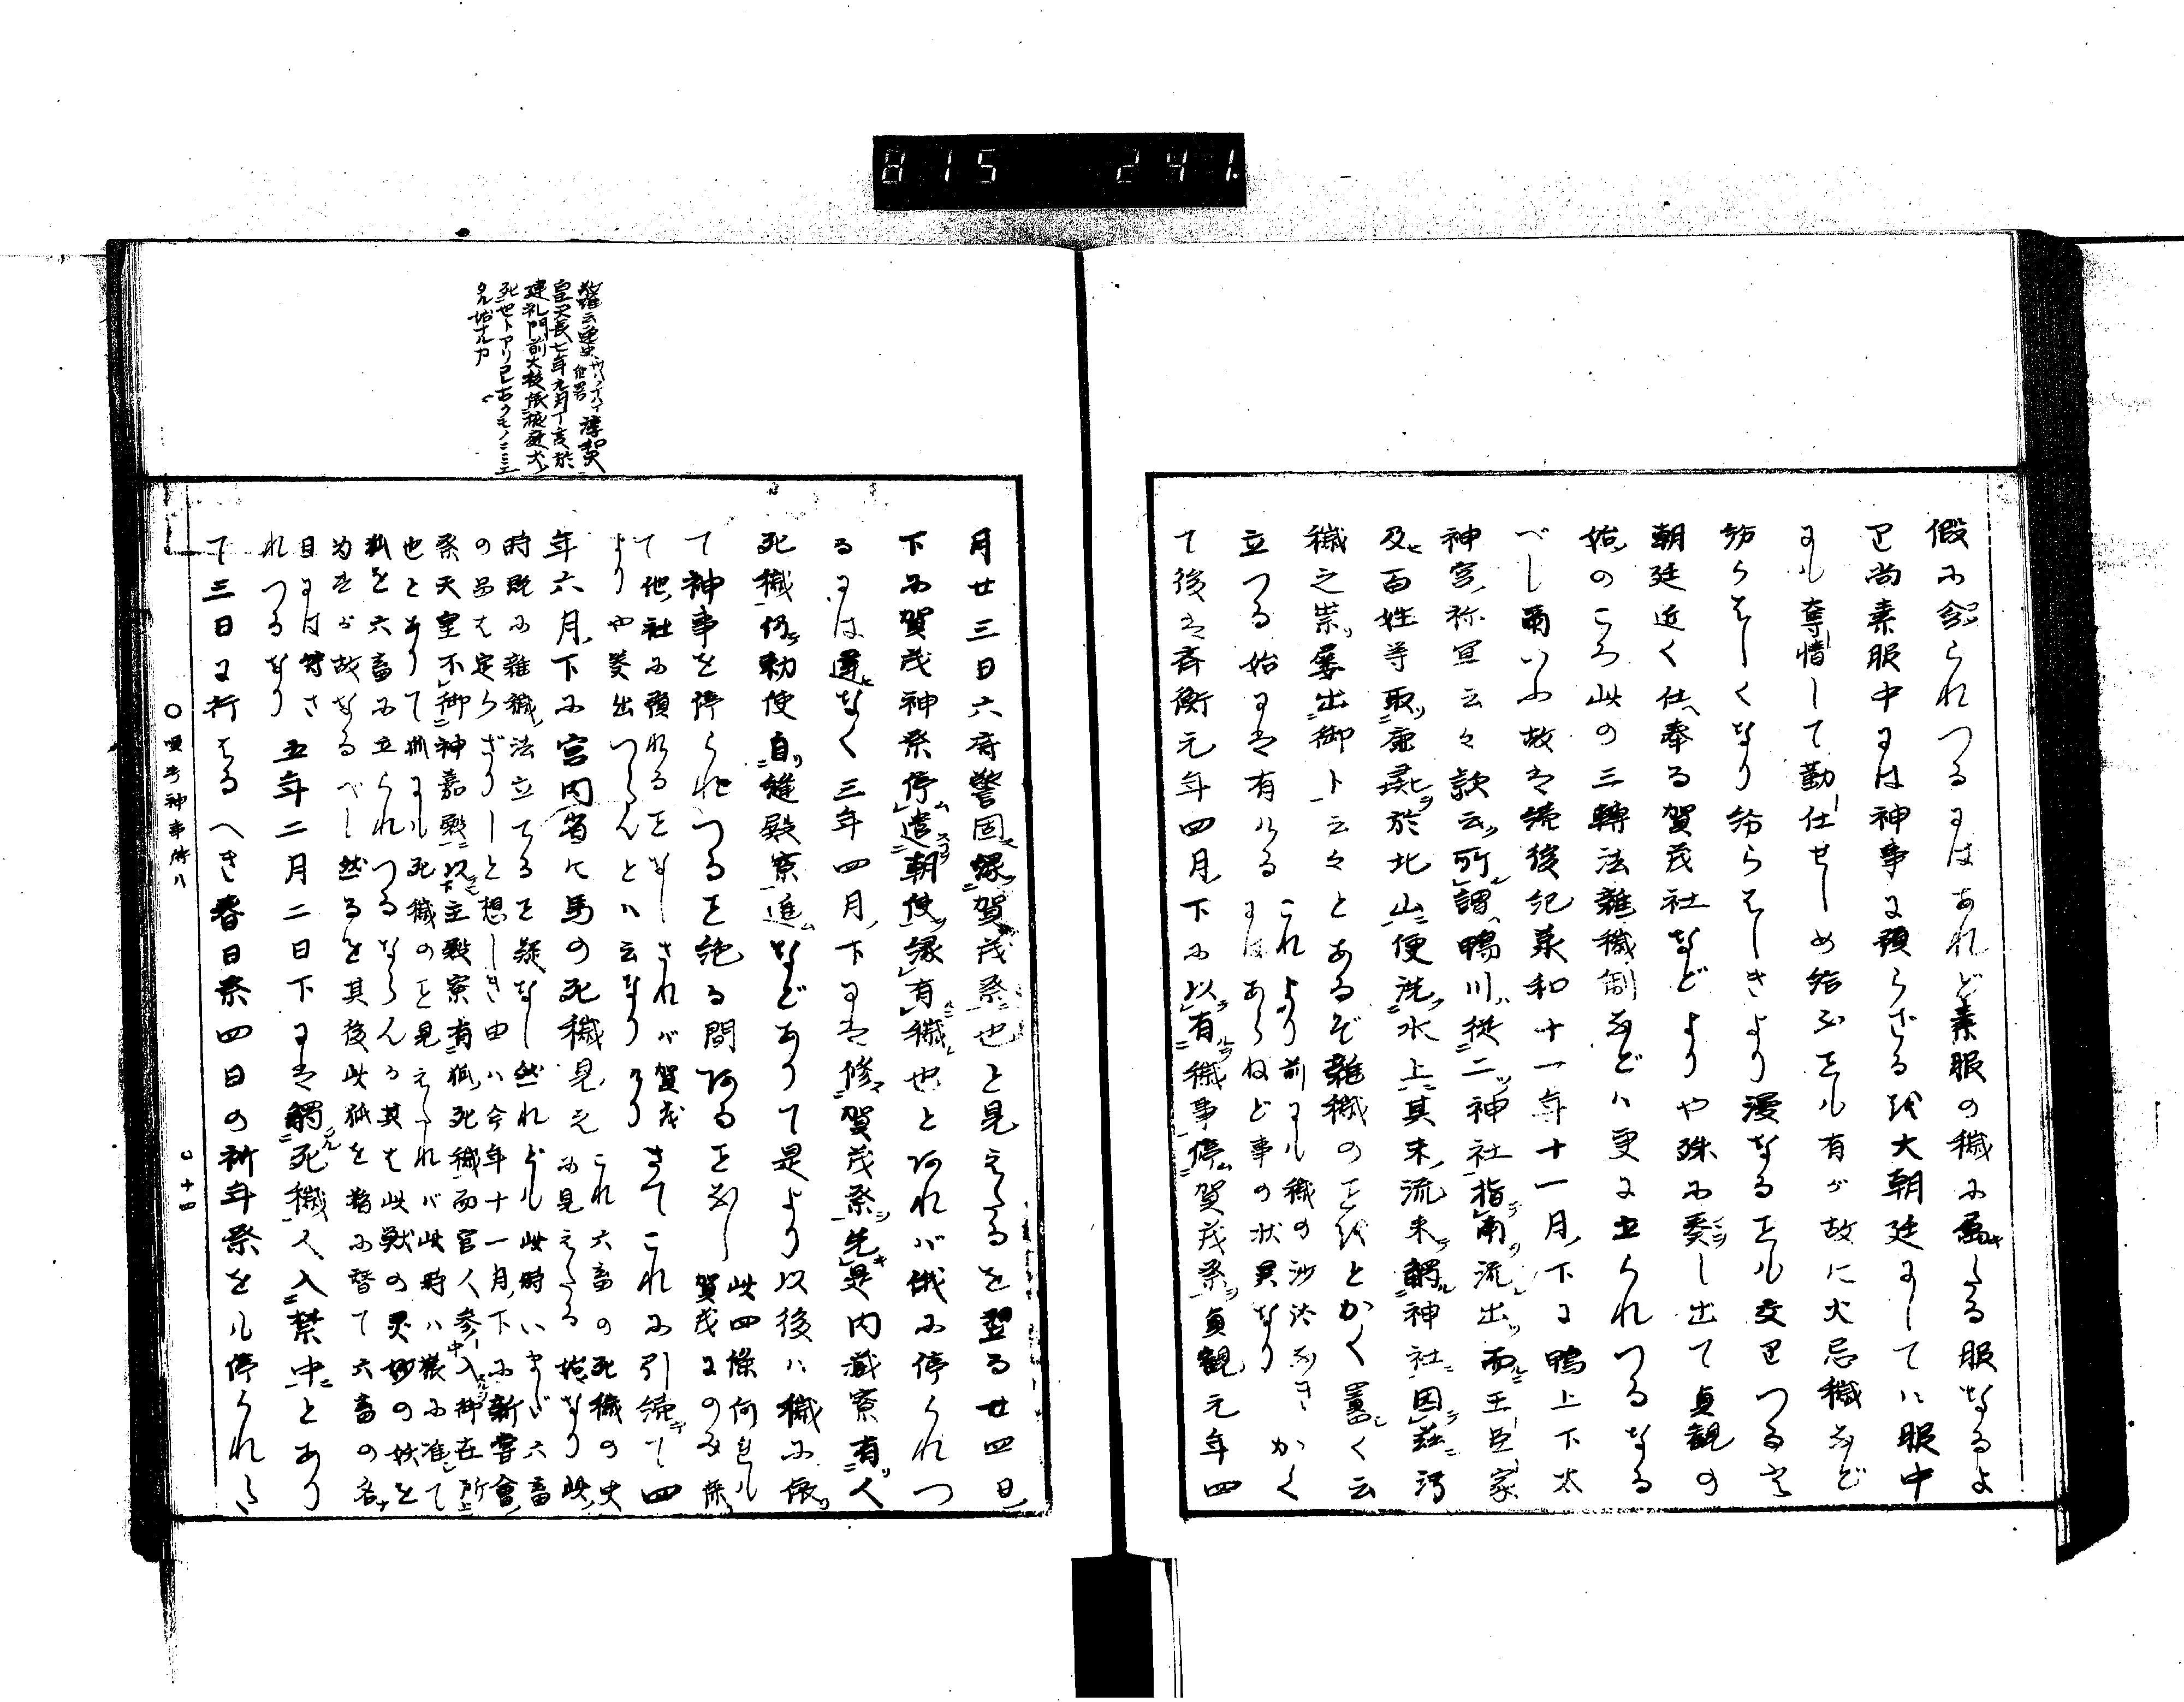 815 241.
假に給られつるにはあれど素服の穢に忌たる服なるよ
り尚素服中には神事に預らざるを大朝廷にしては服中
にも奪情して勤仕せしめ給ふことも有が故に火忌穢など
紛らはしくなり紛らはしきより漫なることも交りつるは
朝廷近く仕奉る賀茂社などよりや殊に委し出て貞観の
始のころ此の三轉法雜穢制などハ更に立られつるなる
べし爾いふ故は続後紀承和十一年十一月下に鴨上下太
神宮祢宜云々款云所謂鴨川従二神社指南流出而王臣家
及百姓等取鹿彘於北山便洗水上其末流来觸神社因茲汚
穢之祟屡出御卜云々とあるぞ雜穢のことをとかく置く云
立つる始には有ける これより前にも穢の沙汰なきにはあらねど事の状異なり かく
て後は斉衡元年四月下に以有穢事停賀茂祭貞観元年四
月廿三日六府警固縁賀茂祭也と見えたるを翌る廿四日
下に賀茂神祭停遣朝使縁有穢也とあれバ俄に停られつ
るには違なく三年四月下には修賀茂祭先是内蔵寮有人
死穢仍勅使自縫殿寮進などありて是より以後ハ穢に依
て神事を停られつること絶る間なることなし 此四條何れも賀茂にのみ係
て他社に預れることなしされバ賀茂よりや発出つらんとハ云なりけり さてこれに引続て四
年六月下に宮内省に馬の死穢見え これ六畜の死穢の史に見えたる始なり此
時既に雜穢法立てること疑なし然れども此時いまだ六畜
の名は定らざりしと想しき由ハ今年十一月下に新嘗會
祭天皇不御神嘉殿以下主殿寮有狐死穢而官人参入神在所上
也とありて狐にも死穢のこと見えたれバ此時ハ猥に准て
狐を六畜に立られつるならんか其は此獣の灵妙の妖を
為すが故なるべし然るを其後此狐を鷄に替て六畜の名
目には等さ
れつるなり 五年二月二日下には觸死穢人入禁中とあり
て三日に行はるへき春日祭四日の祈年祭をも停られた
〇唖考神事俗八
〇十四
淳和天
皇天長七年九月丁亥於
建礼門前大祓
死也トアリ
タル始ナルカ